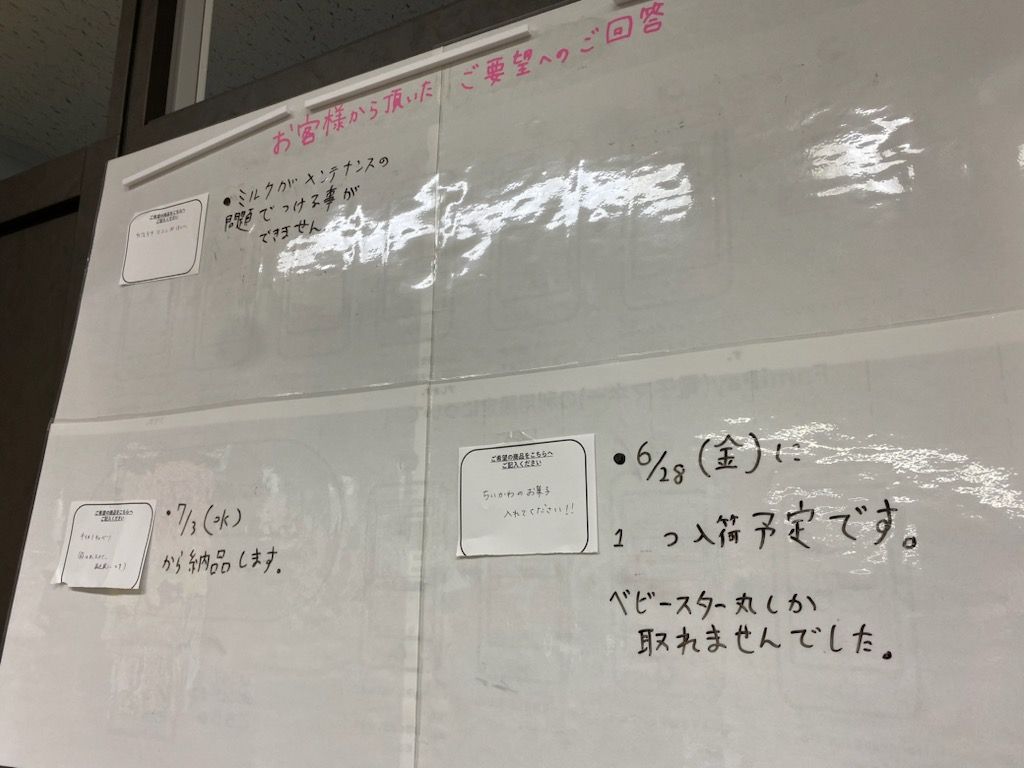 お客様から頂いた ご要望へのご回答
ご希望の商品をこちらへ
ご記入ください
・ミルクがメンテナンスの
問題でつける事が
できません
ご希望の商品をこちらへ
ご記入ください
・7/3(水)
から納品します。
ご希望の商品をこちらへ
ご記入ください
ちいかわのお菓子
入れてください!!
・6/28(金)に
1つ入荷予定です。
ベビースター丸しか
取れませんでした。